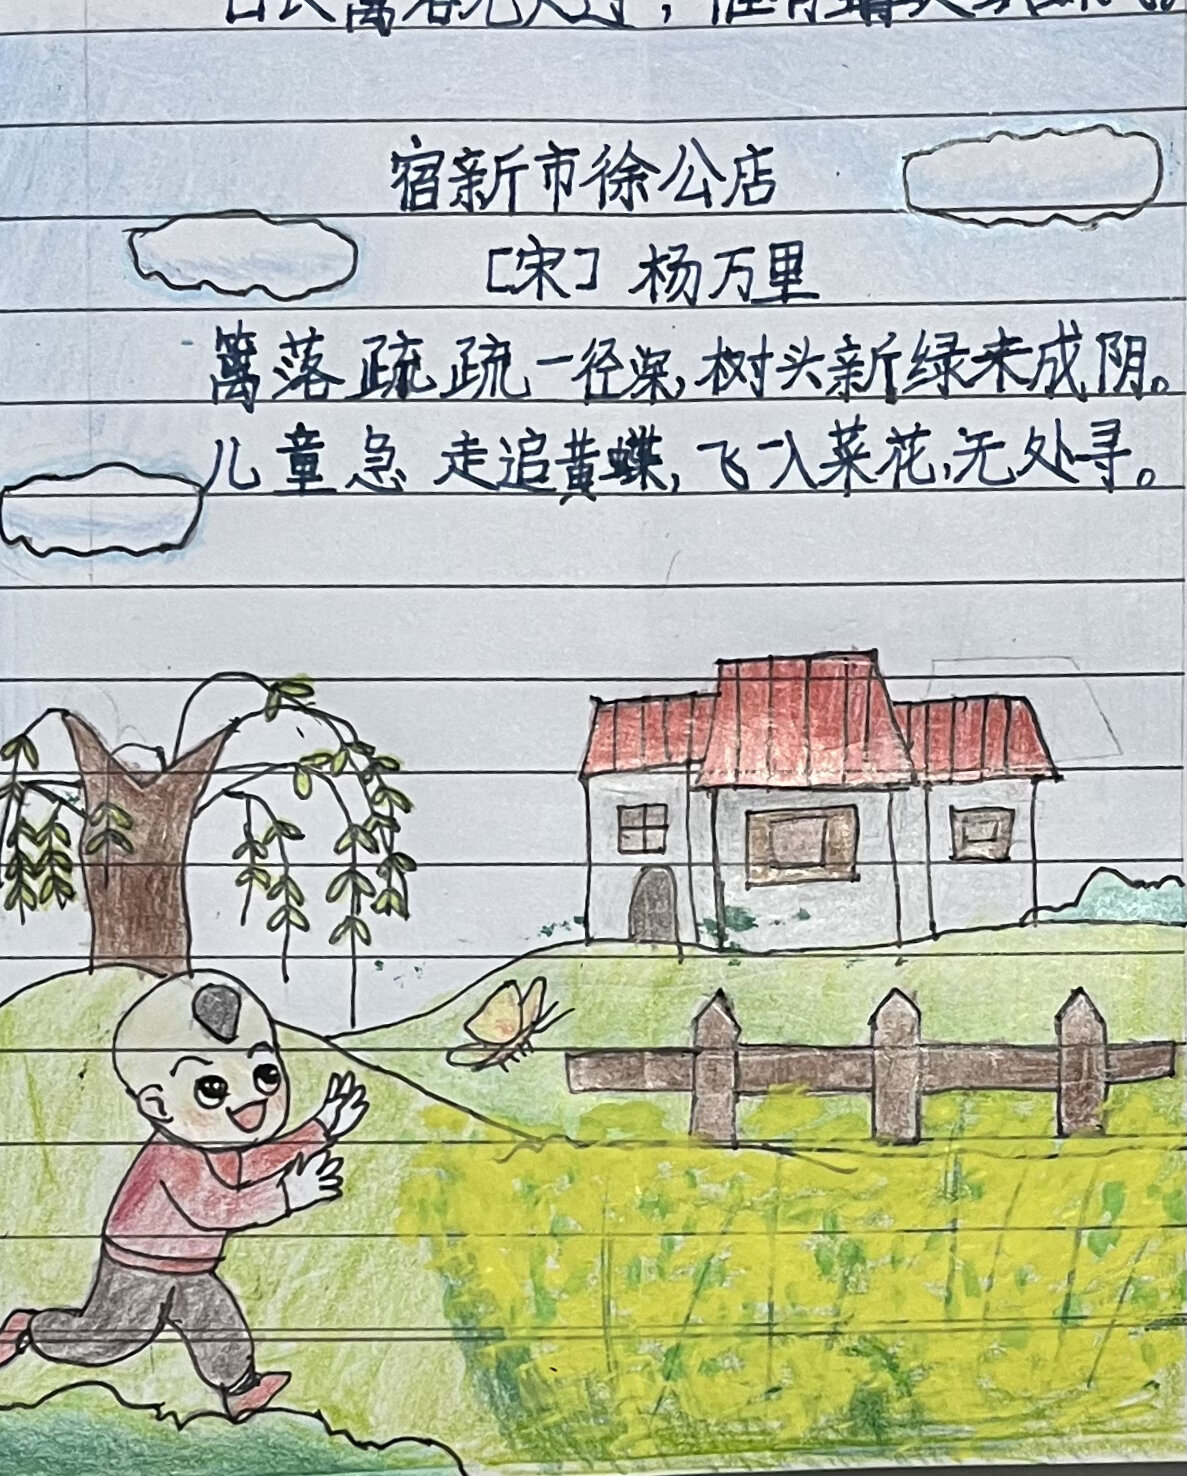 宿新市徐公店
[宋] 杨万里
篱落疏疏一径深,树头新绿未成阴。
儿童急走追黄蝶,飞入菜花,无处寻。